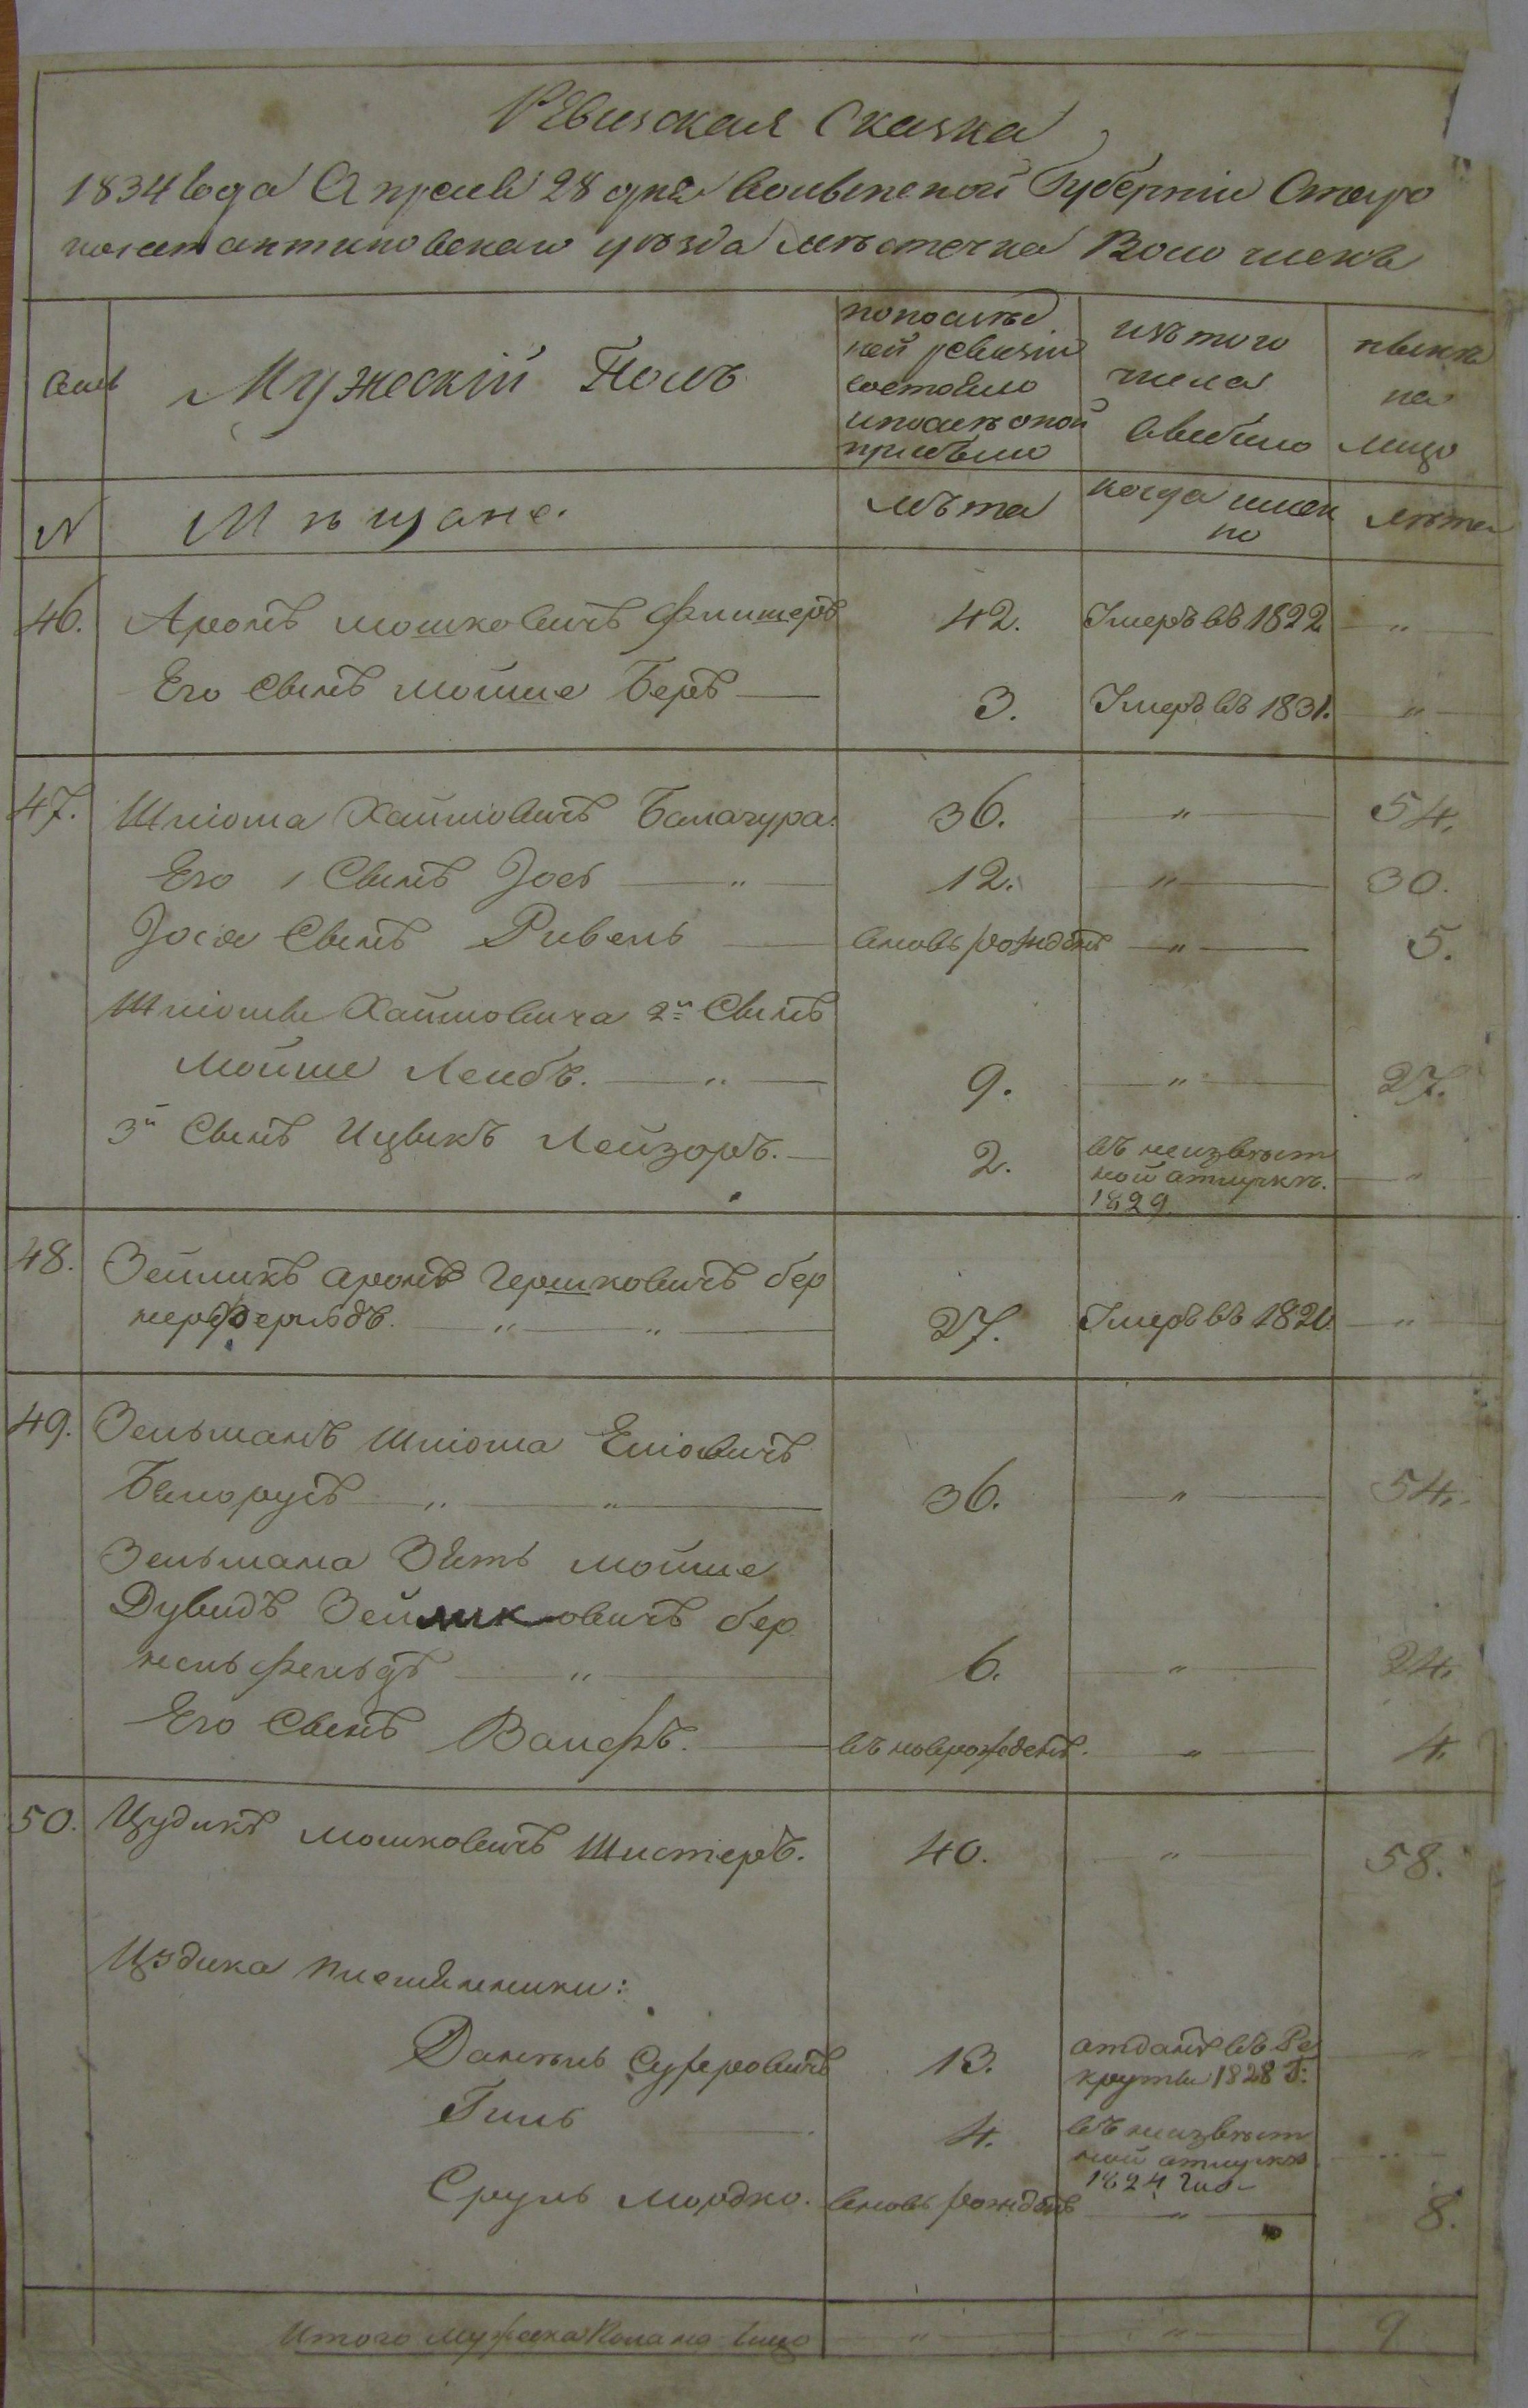 Ревизская Сказка
1834 года Апреля 28 дня Волынской Губернии Старо
константиновскаго уезда местечка Волочискъ
Мужескій Полъ
попослед
ней ревизіи
состояло
ипосле оной
прибыло
изъ того
числа
выбыло
ныне
на
лицо
N
Мещане.
лета
когда имен
но
лета
46.
Аронъ Мошковичъ
42.
Умеръ въ 1822
"
Его Сынъ Мойше Беръ
3.
Умеръ въ 1831.
"
47.
Шліома Хаимовичъ Балагура.
36.
"
54.
Его 1 Сынъ Іось "
12.
"
30.
Іося Сынъ Рувель
вновь рожденъ
"
5.
Шліомы Хаимовича 2й Сынъ
Мойше Леибъ. "
9.
"
27.
3й Сынъ Ицыкъ Лейзоръ.
2.
въ неизвест
ной отлучке.
1829
"
48.
Зейликъ Аронъ Гершковичъ бер
" "
27.
Умеръ въ 1820.
"
49.
Зельманъ Шліома Еліовичъ
Белорусъ " "
36.
"
54.
Зельмана Зять Мойше
Дувидъ Зейликовичъ бер
нельфельдъ "
6.
"
24.
Его Сынъ Волфъ.
въ новрожденъ.
"
4.
50.
Цудикъ Мошковичъ Шистеръ.
40.
"
58.
Цудика племянники:
Даніель Суферовичъ
13.
отданъ въ Ре
круты 1828 Г:
"
Гиль
4.
въ неизвест
ной отлучке
1824 Год
"
Сруль Мордко.
вновь рожденъ
"
8.
Итого мужеска пола на лицо
"
"
9